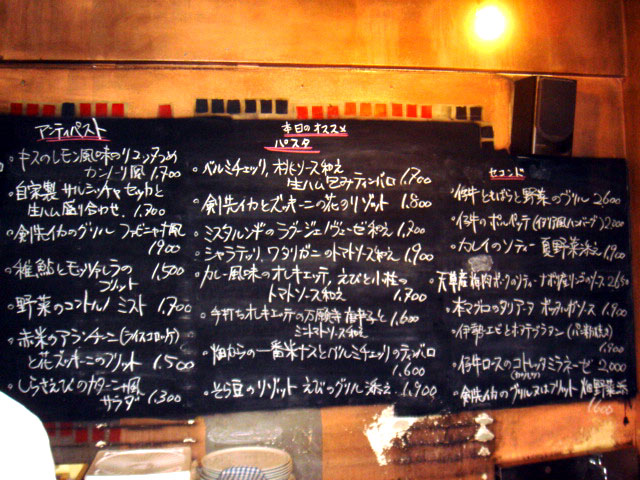 アンティパスト
・キスのレモン風味のリコッタつめ
カンノーリ風 1.700
・自家製 サルシッチャ セットと
生ハム盛り合わせ. 1.700
・剣先イカのグリル 風
1900
・稚鮎とモッツァレラの
フリット 1.500
・野菜のコントルノ ミスト 1.700
・赤米のアランチーニ(ライスコロッケ)
と花ズッキーニのフリット 1.500
・しらさえびのカターニャ風
サラダ 1.300
本日のオススメ
パスタ
・ベルミチェッリ, ソース和え
生ハム包みティンバロ 1.700
・剣先イカとズッキーニの花のリゾット 1.800
・ミスタルンギのラグージェノヴェーゼ和え 1.700
・シャラテッリ, ワタリガニのトマトソース和え 1.900
・カレー風味のオレキエッテ, えびと小柱の
トマトソース和え 1.700
・手打ちオレキエッテの万願寺唐辛子と 1.600
ミニトマトソース和え
・畑からの一番米ナスとバルミチェッリのティンバロ
1.600
・そら豆のリゾット えびのグリル添え. 1.900
セコンド
・仔牛ともばらと野菜のグリル 2600
・仔牛のポルペッテ(イタリア風ハンバーグ) 2000
・カレイのソテー 夏野菜添え 1,900
・天草産梅肉ポークのソテー・ナポリ産リーゴのソース
・本マグロのタリアータ ソース 1.900
・伊勢エビとホタテグラタン
1.900
・仔牛ロースのコトレッタミラネーゼ 2,000
(カツレツ)
・剣先イカのグリル又はフリット 畑野菜添
1600